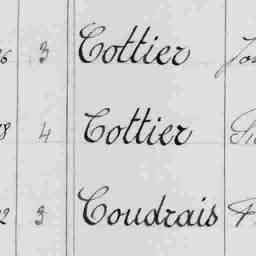 6 3 Cottier Jo
8 4 Cottier
2 3 Coudrais